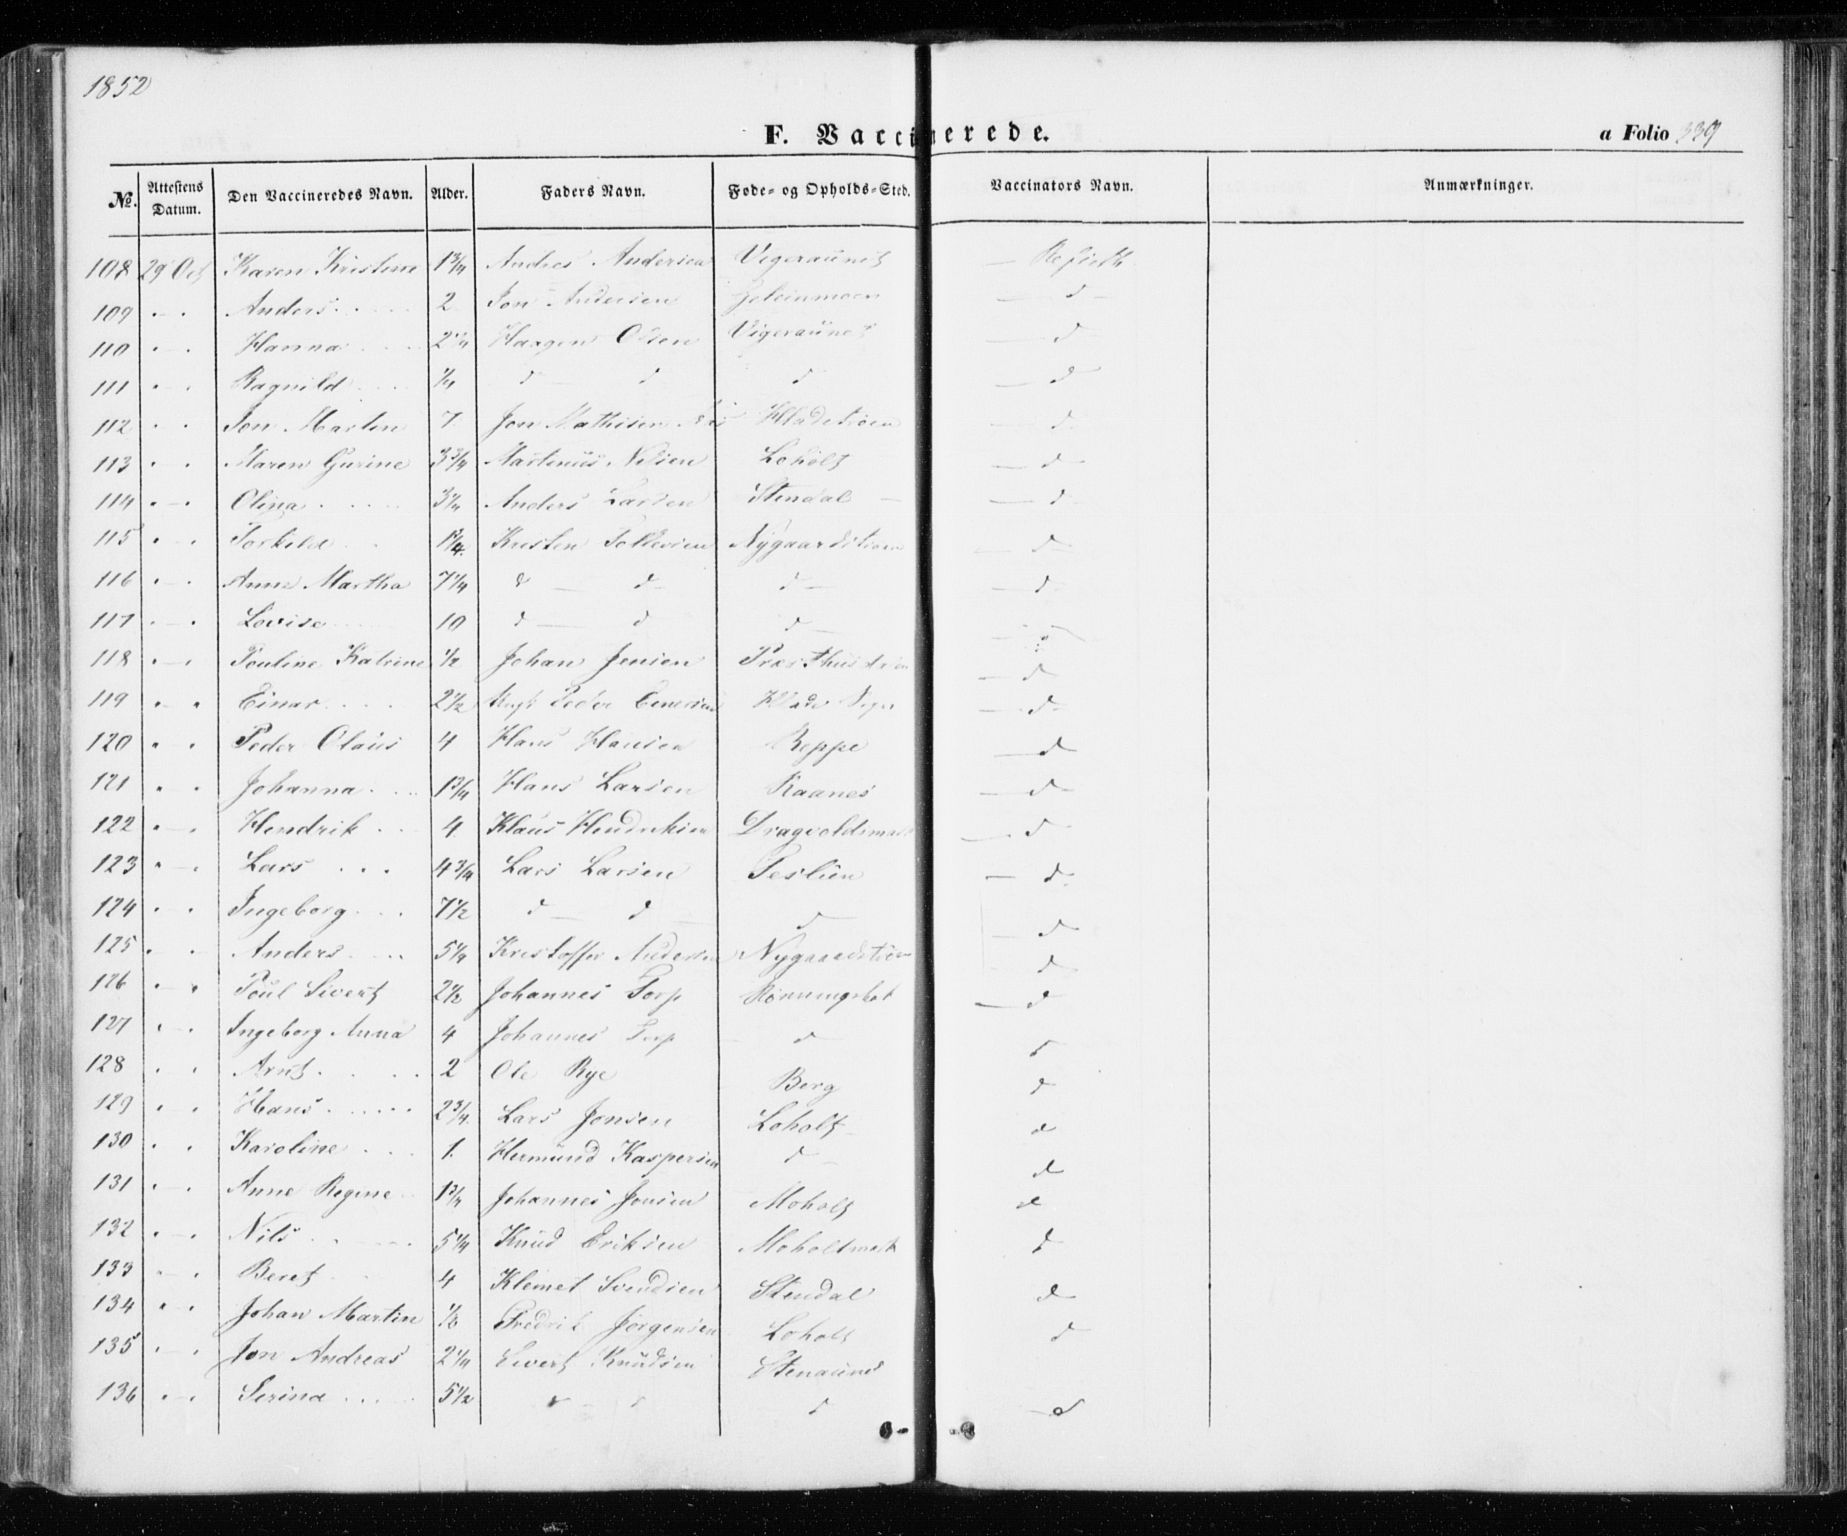 1852
F. Vaccinerede.
a Folio 339
No. Attestens Datum. Den Vaccineredes Navn. Alder. Faders Navn. Føde- og Opholds-Sted. Vaccinators Navn. Anmærkninger.
108 29 Oct Karen Kristine 1 3/4 Andres Andersen Vegeraunet —
109 " " Anders 2 Jon Andersen — d —
110 " - " Hanna Haagen Olsen Vigeraunet — d
111 " - " Ragnild 1/4 d — d d — d
112 " " Jon Martin 7 Jon Mathisen — d
113 " - " Maren Gurine 3 3/4 Martinus Nilsen Loholt — d
114 " - " Olina 3 1/4 Anders Larsen Stendal — — d
115 " - " Torkild 1 3/4 Kristen Nygaardstrøen — d
116 " - " Anne Martha 7 1/4 d — d d — — d
117 " - " Lovise 10 d — d d —
118 " - " Pouline Katrine 1/2 Johan Jensen — d
119 " - " Einar 2 1/2 Peder — d
120 " " Peder Olaus 4 Hans Hansen Reppe — d
121 " " Johanna 1 3/4 Hans Larsen Raanes — d
122 " - " Hendrik 4 Klaus Hendriksen — d
123 " - " Lars 4 3/4 Lars Larsen Teslien — d
124 " " Ingeborg 7 1/2 d — d d — d
125 " " Anders 5 1/4 Kristoffer Andersen d
126 " - " Poul Sivert 2 1/2 Johannes Torp — d
127 " - " Ingeborg Anna 4 Johannes Torp d d
128 " " Arnt 2 Ole Rye Berg d
129 " " Hans 2 3/4 Lars Jonsen Loholt d
130 " " Karoline 1 Hermund Kaspersen d d
131 " - " Anne Regine 1 3/4 Johannes Jonsen Moholt d
132 " - " Nils 5 1/4 Knud Eriksen Moholtmark d
133 " - " Beret 4 Klemet Svendsen Stendal d
134 " - " Johan Martin Fredrik Jørgensen Loholt d
135 " - " Jon Andreas 2 1/4 Sivert Knudsen Stenaunet
136 " - " Serina 5 1/2 d — d d — d